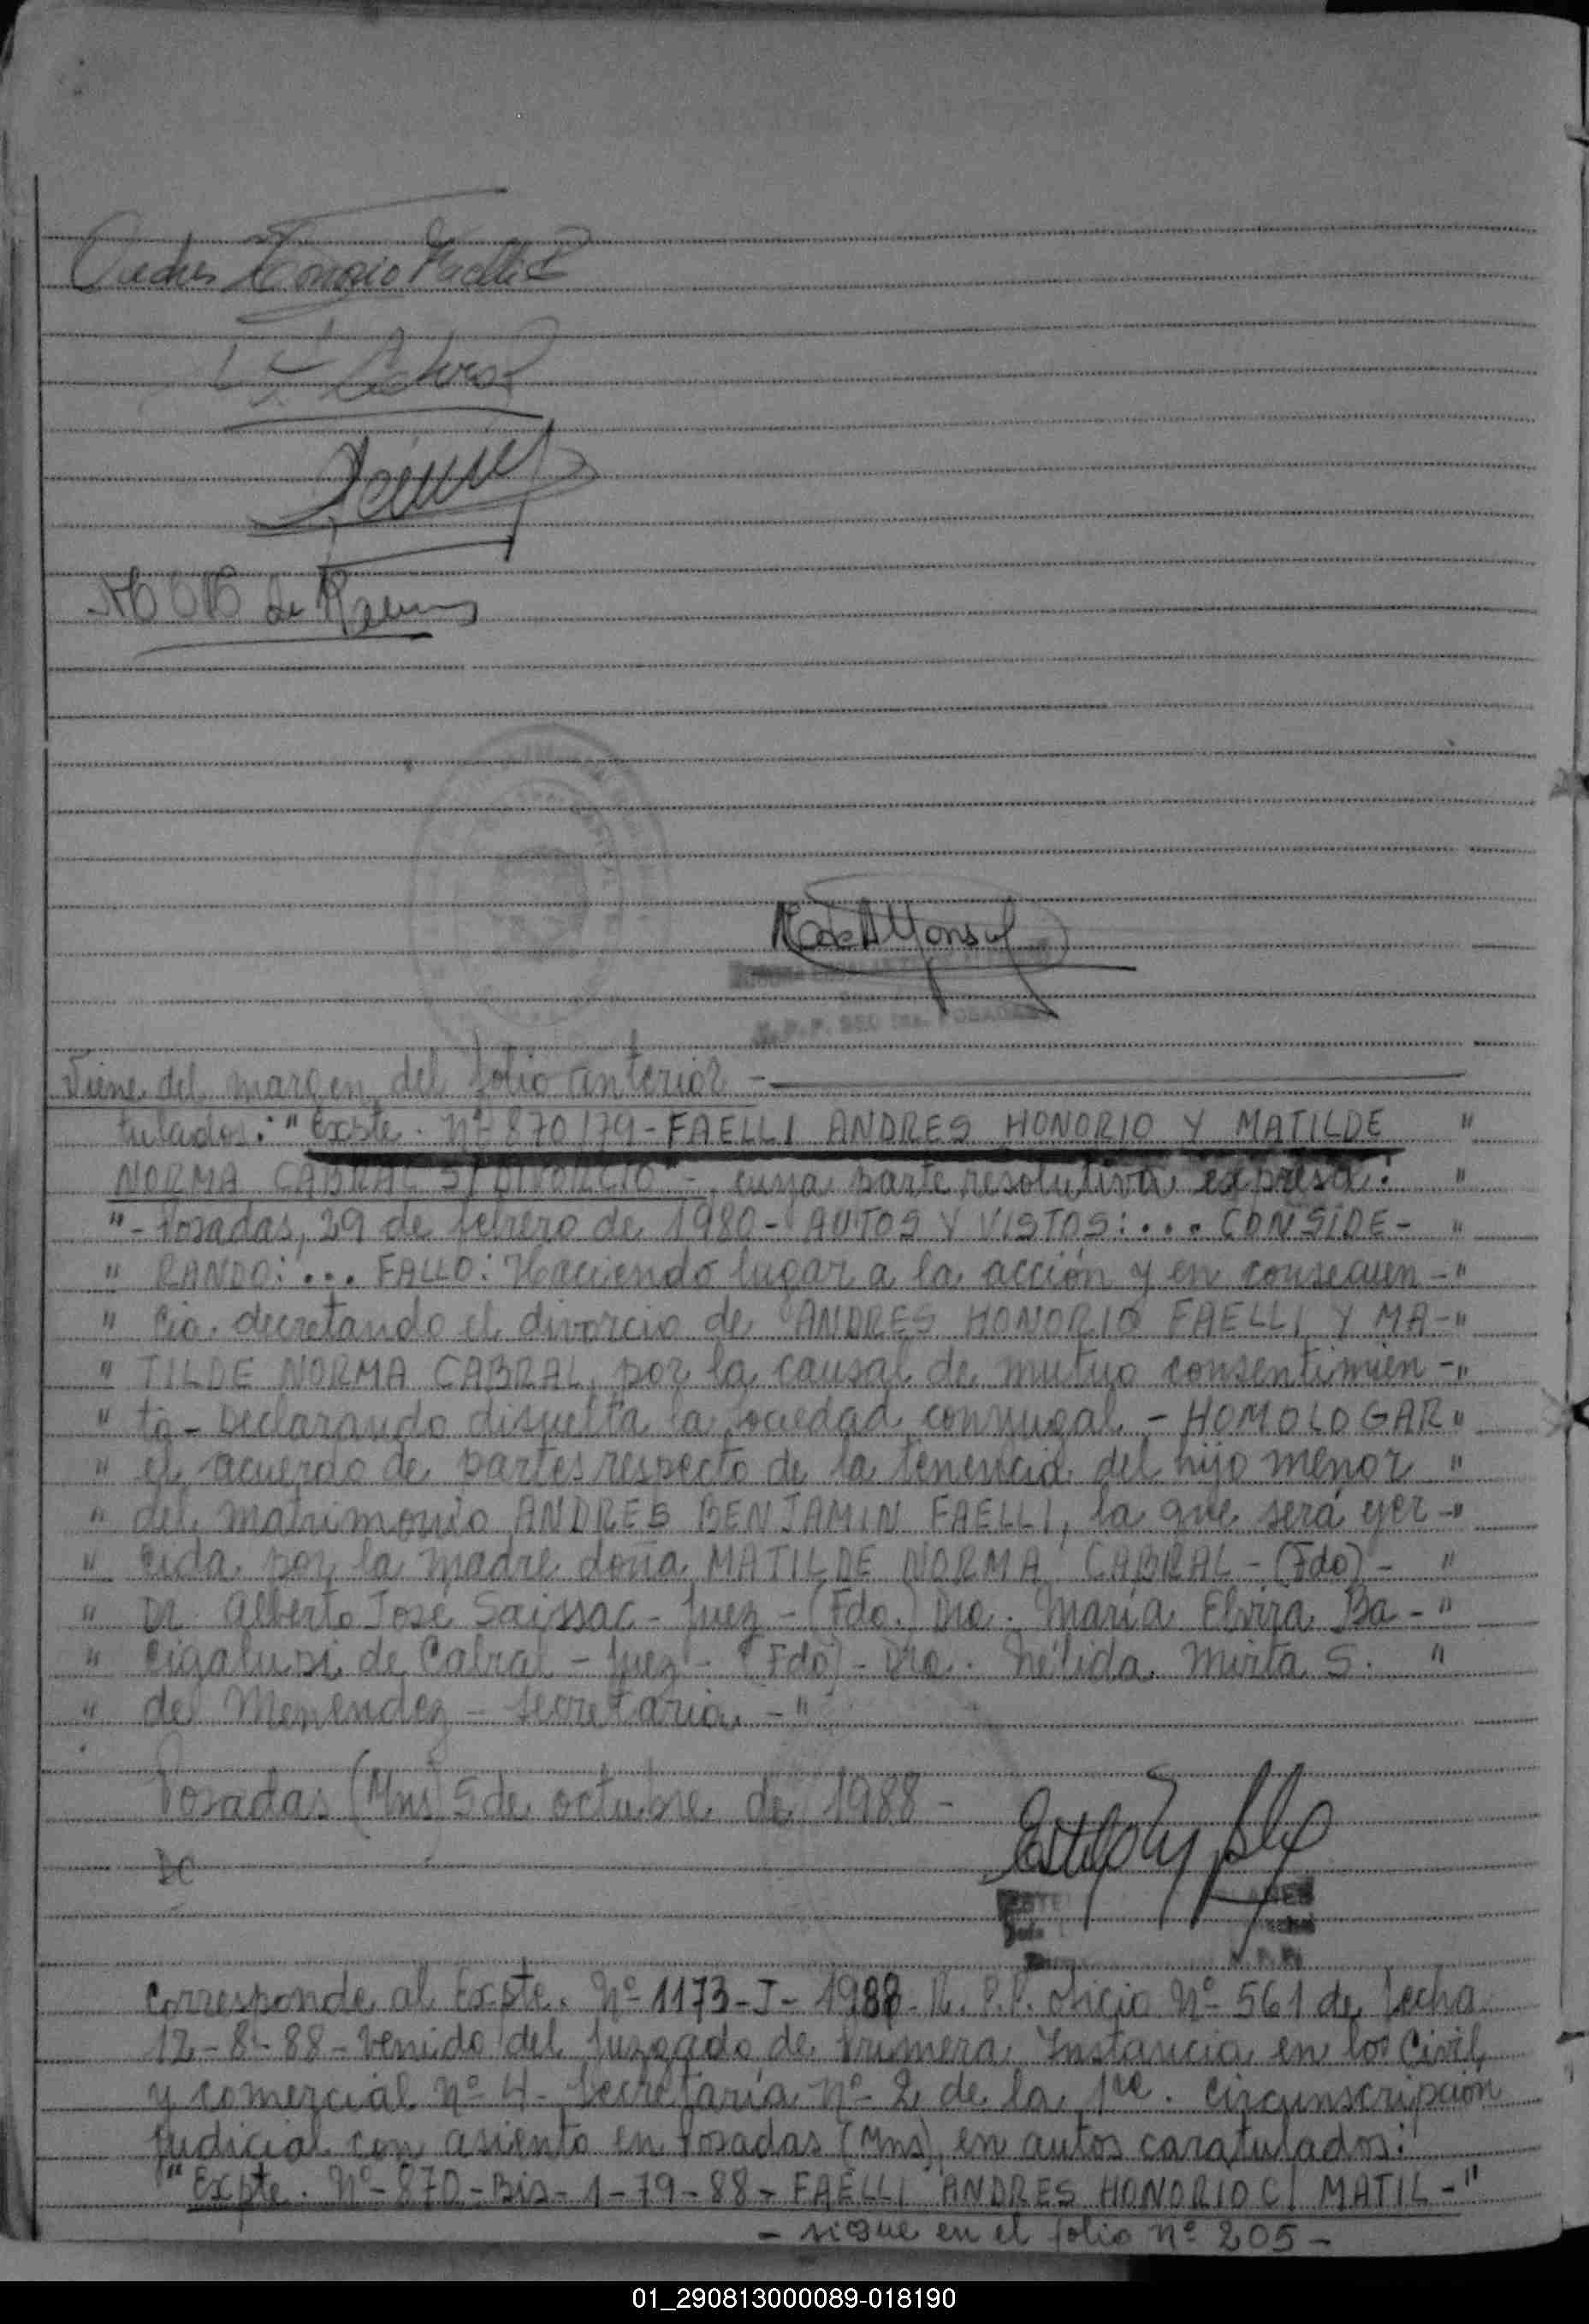 Andres Honorio Faelli
Cabral
de
Viene del margen del folio anterior -
tulados: "Expte. Nº 870/79 - FAELLI ANDRES HONORIO Y MATILDE "
NORMA CABRAL S/ DIVORCIO" -, cuya parte resolutiva expresa: "
"- Posadas, 29 de febrero de 1980 - AUTOS Y VISTOS: ... CONSIDE- "
" RANDO: ... FALLO: Haciendo lugar a la acción y en consecuen - "
" cia. decretando el divorcio de ANDRES HONORIO FAELLI Y MA- "
" TILDE NORMA CABRAL, por la causal de mutuo consentimien - "
" to - Declarando disuelta la sociedad conyugal - HOMOLOGAR "
" el acuerdo de partes respecto de la tenencia del hijo menor "
" del matrimonio ANDRES BENJAMIN FAELLI, la que será ejer - "
" cida por la madre doña MATILDE NORMA CABRAL - (Fdo) - "
" Dr. Alberto José Saissac - Juez - (Fdo.) Dra. María Elvira Ba - "
" cigalupi de Cabral - Juez - (Fdo) - Dra. Nélida Mirta S. "
" del Menendez - secretaria - "
Posadas (Mns) 5 de octubre de 1988 -
Corresponde al Expte. Nº 1173 - I - 1988 - R. P. P. oficio Nº 561 de fecha
12 - 8 - 88 - venido del Juzgado de Primera Instancia en lo Civil
y comercial nº 4 - Secretaría nº 2 de la 1ra. circunscripción
judicial con asiento en Posadas (Mns), en autos caratulados:
"Expte. Nº - 870 - Bis - 1 - 79 - 88 - FAELLI ANDRES HONORIO C/ MATIL - "
- sigue en el folio nº 205 -
01_290813000089-018190